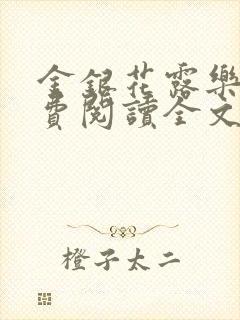 金銀花露樂
費閱讀全文
橙子太二